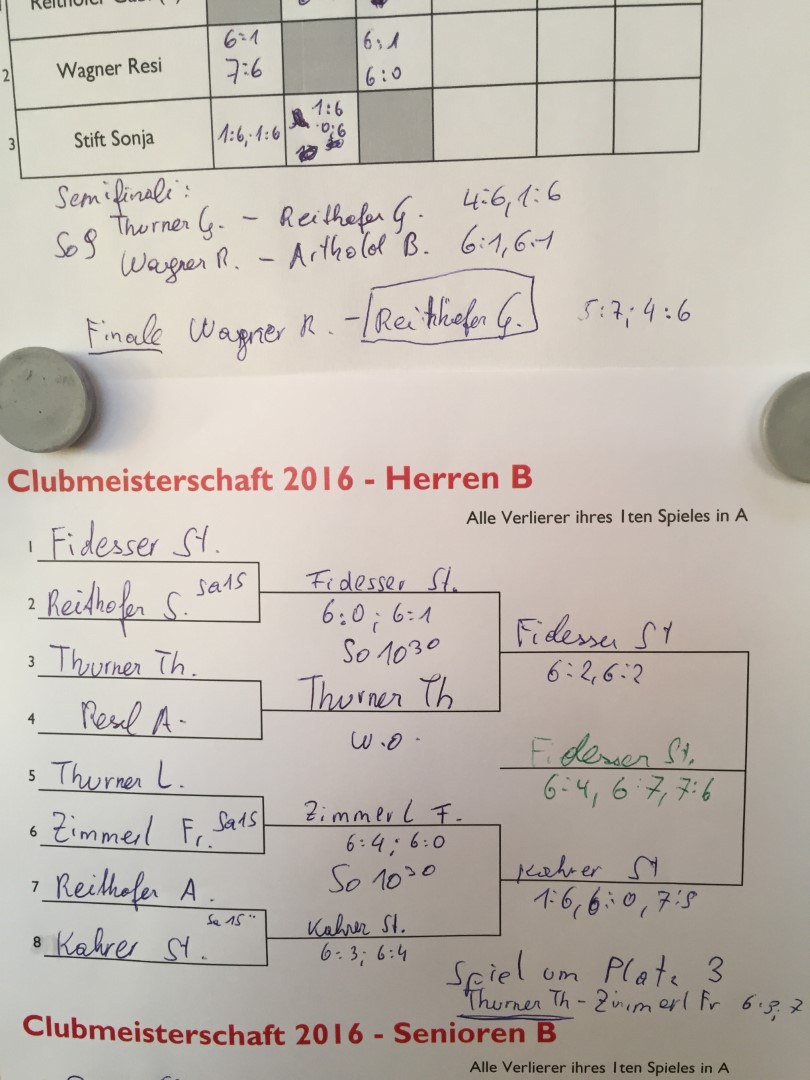 2 Wagner Resi 6:1 7:6 6:1 6:0
3 Stift Sonja 1:6, 1:6 1:6 0:6
Semifinali:
So 9 Thurner G. - Reithofer G. 4:6, 1:6
Wagner R. - Arthold B. 6:1, 6:1
Finale Wagner R. - Reithofer G. 5:7; 4:6
Clubmeisterschaft 2016 - Herren B
Alle Verlierer ihres 1ten Spieles in A
1 Fidesser St.
2 Reithofer S. Sa15
Fidesser St.
6:0; 6:1
So 10³⁰
3 Thurner Th.
4 Resl A.
Thurner Th
W.O.
Fidesser St
6:2, 6:2
5 Thurner L.
6 Zimmerl Fr. Sa15
Zimmerl F.
6:4; 6:0
So 10³⁰
7 Reithofer A.
8 Kahrer St. Sa 15
Kahrer St.
6:3; 6:4
Kahrer St
1:6, 6:0, 7:5
Fidesser St.
6:4, 6:7, 7:6
Spiel um Platz 3
Thurner Th - Zimmerl Fr 6:3, 7
Clubmeisterschaft 2016 - Senioren B
Alle Verlierer ihres 1ten Spieles in A